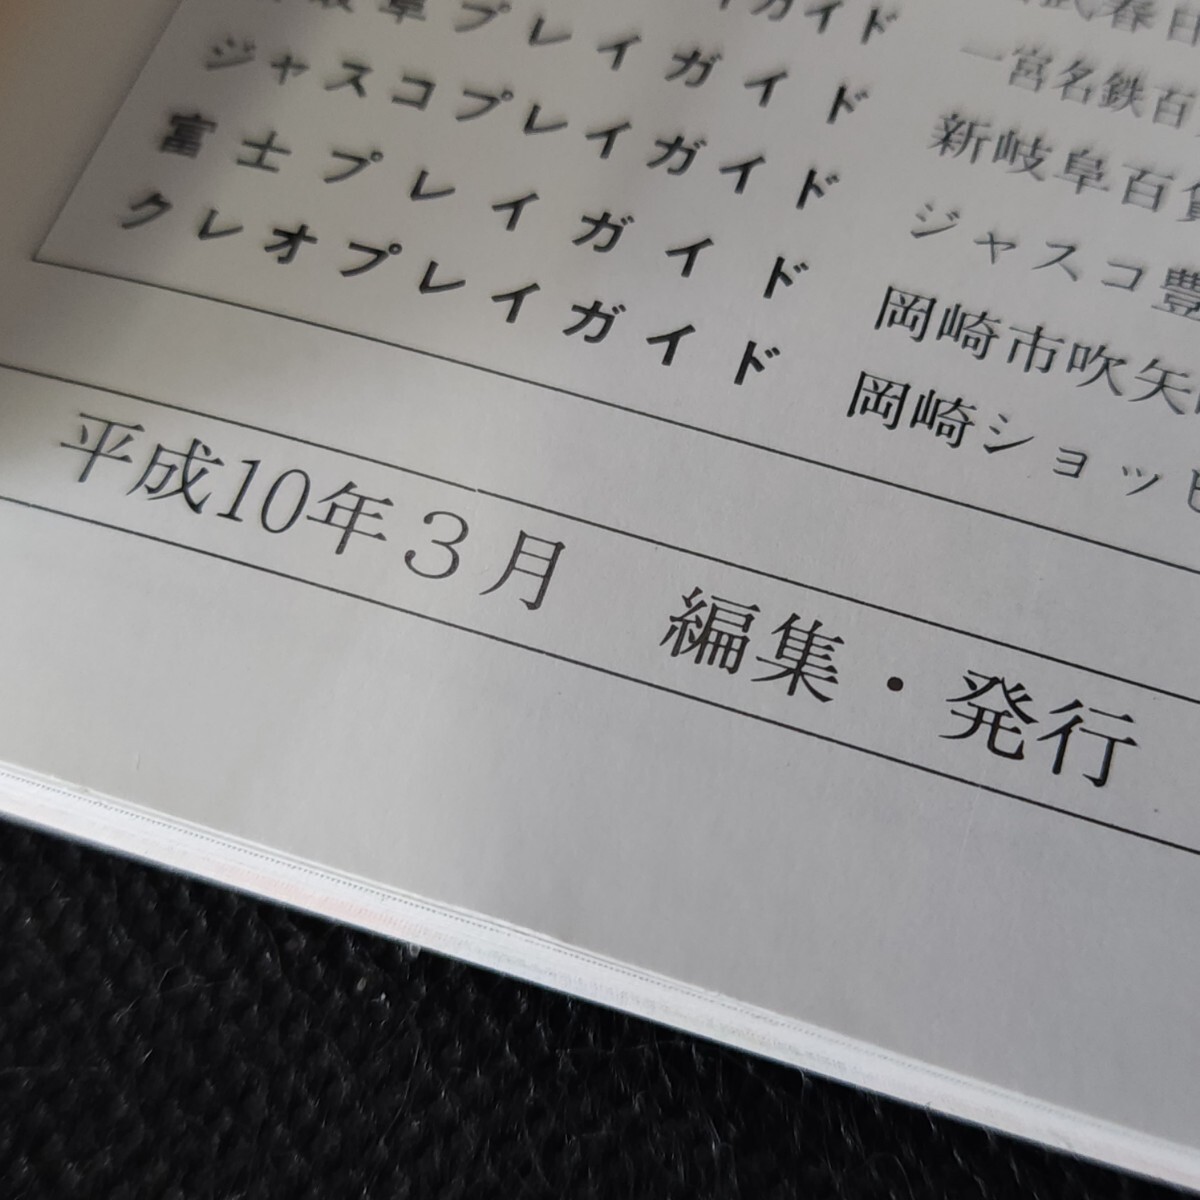 イガイド 春日
岐阜プレイガイド 一宮名鉄百
ジャスコプレイガイド 新岐阜百貨
富士プレイガイド ジャスコ豊
クレオプレイガイド 岡崎市吹矢
岡崎ショッピ
平成10年3月 編集・発行